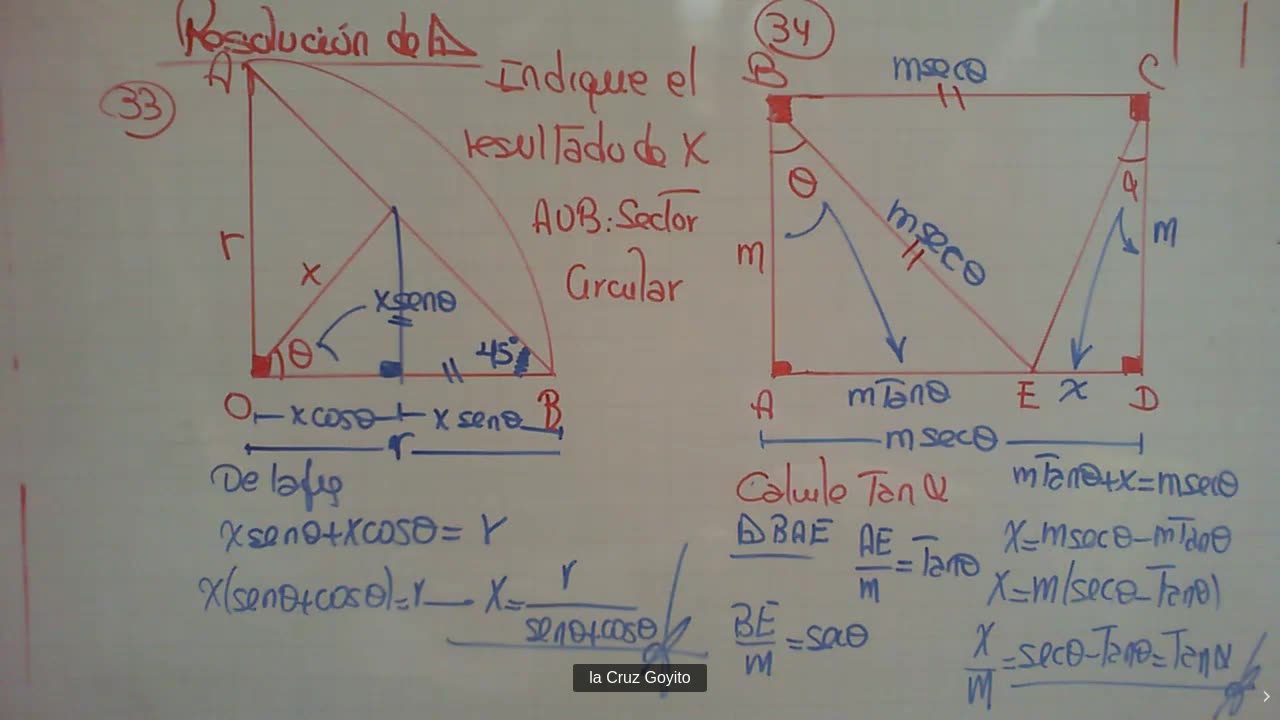 Resolución de
33
Indique el
resultado de x
AOB: Sector
Circular
A
r
x
x senθ
θ
45°
O
x cosθ
x senθ
B
r
De la fig
x senθ + x cosθ = r
x(senθ+cosθ)=r
x = r / senθ+cosθ
34
B
m secθ
C
θ
α
m secθ
m
m
A
m Tanθ
E
x
D
m secθ
Calcule Tan α
BAE
AE / m = Tanθ
BE / m = secθ
m Tanθ+x=m secθ
x=m secθ-m Tanθ
x=m(secθ-Tanθ)
x / m = secθ-Tanθ=Tan α
la Cruz Goyito